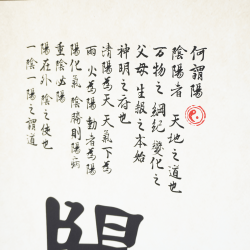 何謂陽
陰陽者 天地之道也
萬物之綱紀 變化之
父母 生殺之本始
神明之府也
清陽為天 氣下為
雨 火為陽 動者為陽
陽化氣 陰勝則陽病
重陰必陽
陽在外 陰之使也
一陰一陽之謂道
陽